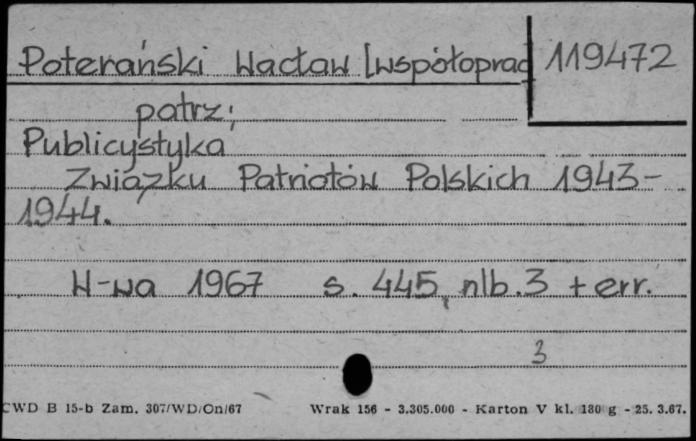 Poterański Wacław [współoprac 119472
patrz;
Publicystyka
Związku Patriotów Polskich 1943-
1944.
W-wa 1967 s. 445, nlb. 3 + err.
3
CWD B 15-b Zam. 307/WD/On/67 Wrak 156 - 3.305.000 - Karton V kl. 180 g - 25. 3.67.